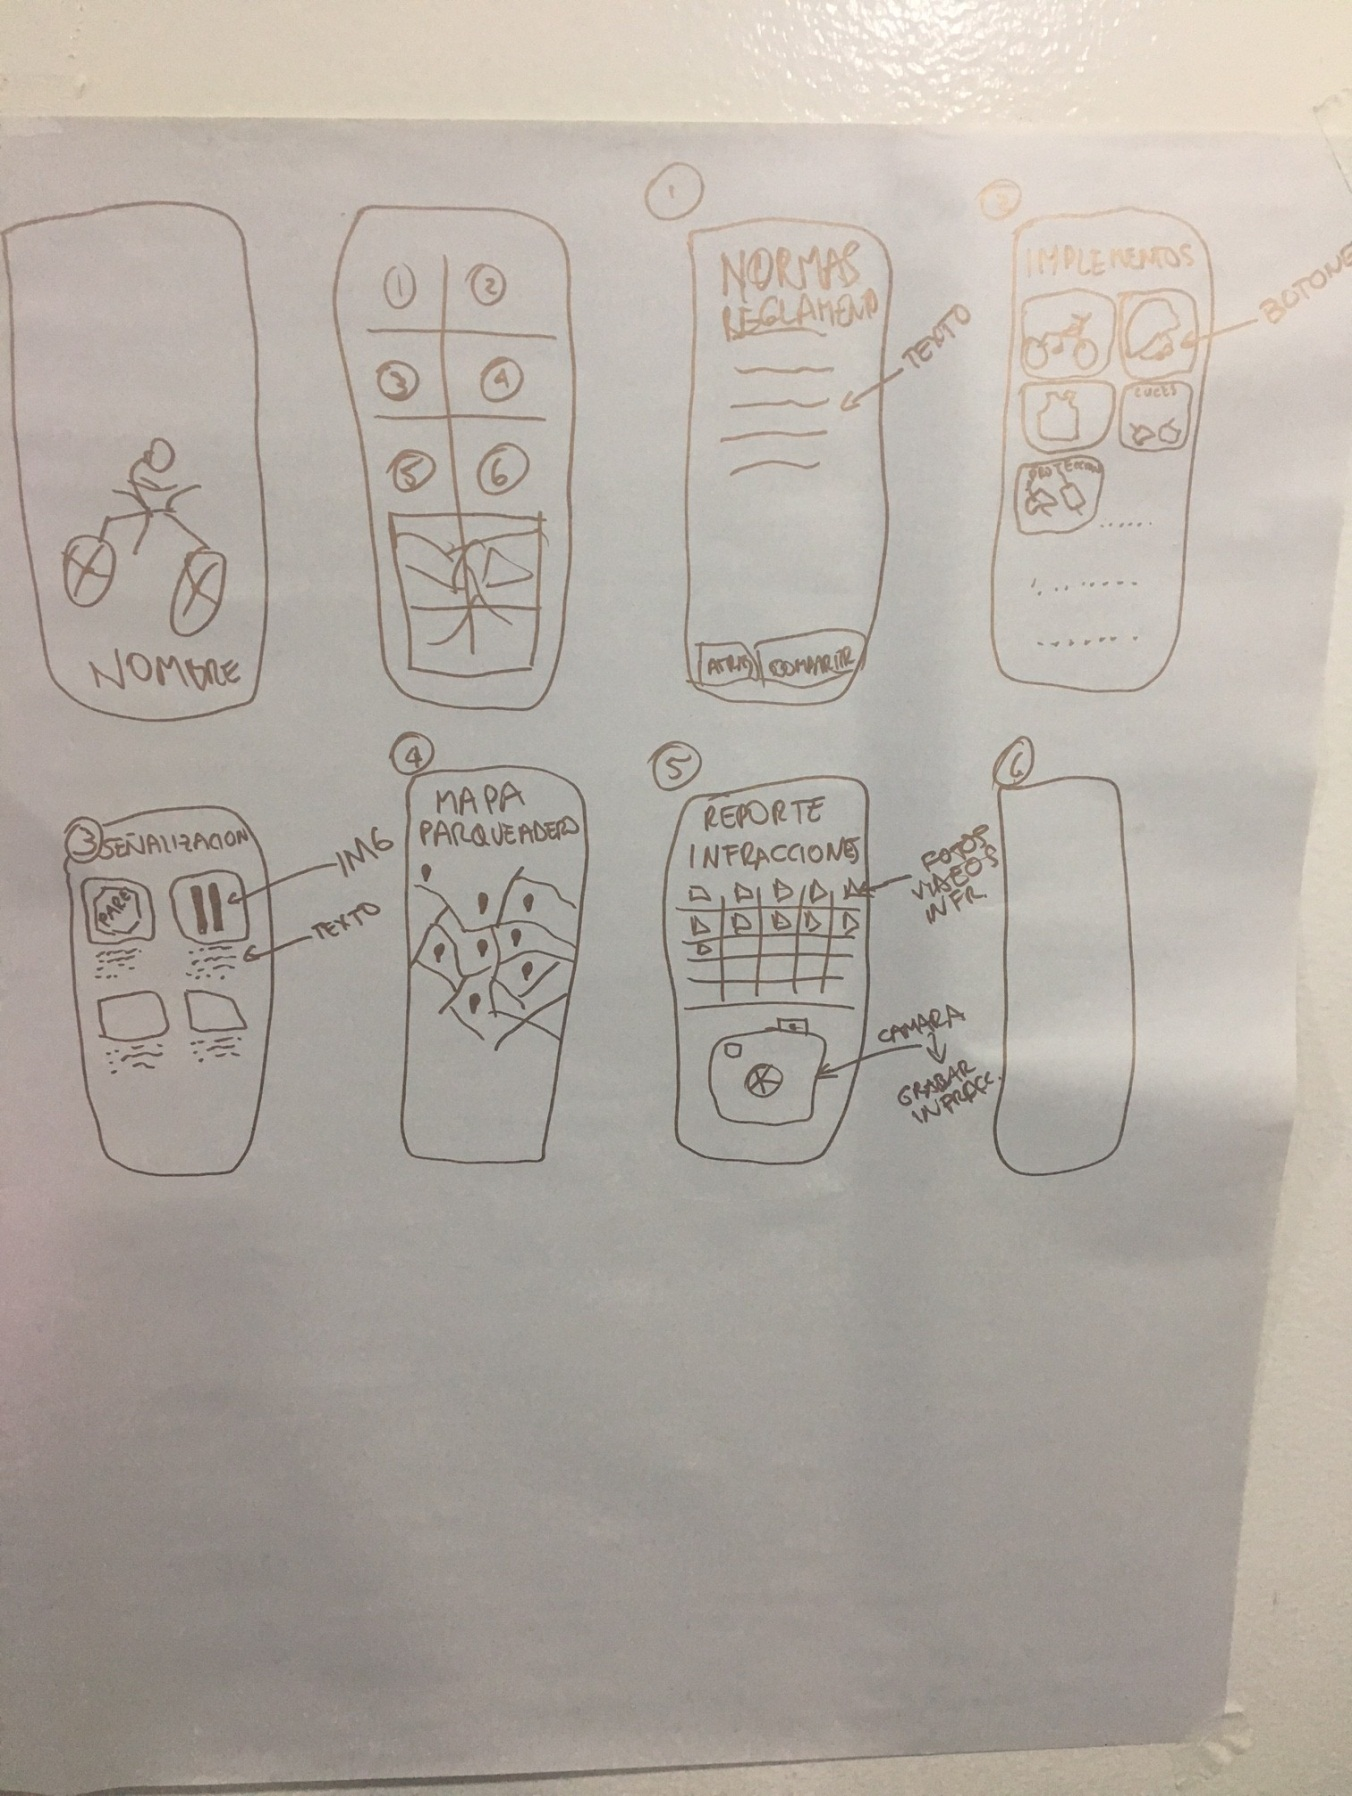 NOMBRE
1
2
3
4
5
6
1
NORMAS
REGLAMENTO
TEXTO
ATRAS
COMPARTIR
2
IMPLEMENTOS
BOTONE
LUCES
PROTECCION
3
SEÑALIZACION
PARE
IMG
TEXTO
4
MAPA
PARQUEADERO
5
REPORTE
INFRACCIONES
FOTOS
VIDEOS
INFR.
CAMARA
GRABAR
INFRACC.
6